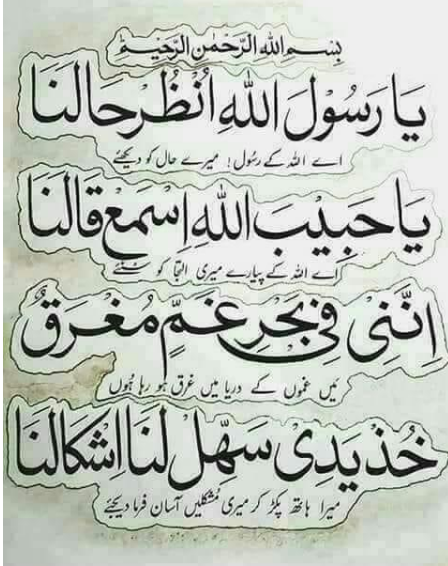 بِسْمِ اللهِ الرَّحْمٰنِ الرَّحِيْمِ
يَا رَسُوْلَ اللهِ اُنْظُرْ حَالَنَا
اے اللہ کے رسُول! میرے حال کو دیکھئے
يَا حَبِيْبَ اللهِ اِسْمَعْ قَالَنَا
اے اللہ کے پیارے میری التجا کو سُنئے
اِنَّنِيْ فِيْ بَحْرِ غَمٍّ مُغْرَقٌ
مَیں غموں کے دریا میں غرق ہو رہا ہُوں
خُذْ يَدِيْ سَهِّلْ لَنَا اِشْكَالَنَا
میرا ہاتھ پکڑ کر میری مُشکلیں آسان فرما دیجئے